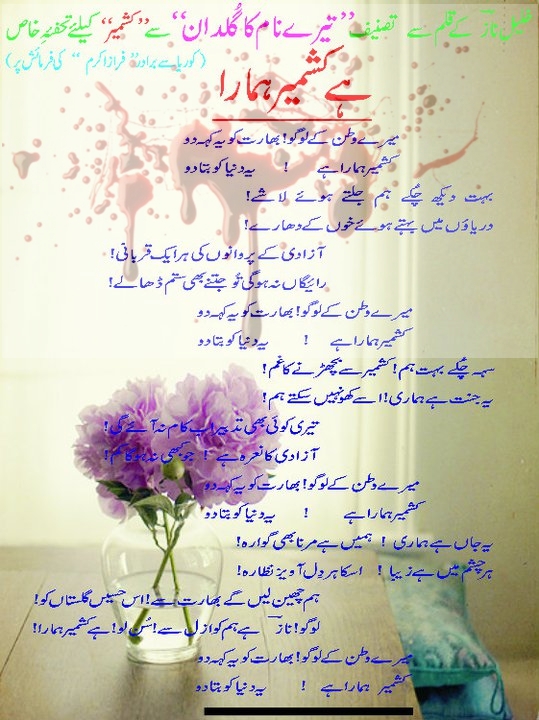 نازؔ کے قلم سے تصنیف ”تیرے نام کا گُلدان“ سے ”کشمیر“ کیلئے تحفۂِ خاص
(کوریا سے برادر ”فراز اکرم“ کی فرمائش پر)
ہے کشمیر ہمارا
میرے وطن کے لوگو! بھارت کو یہ کہہ دو
کشمیر ہمارا ہے ! یہ دنیا کو بتا دو
بہت دیکھ چُکے ہم جلتے ہوئے لاشے!
دریاؤں میں بہتے ہوئے خوں کے دھارے!
آزادی کے پروانوں کی ہر ایک قربانی!
رائیگاں نہ ہوگی تُو جتنے بھی ستم ڈھالے!
میرے وطن کے لوگو! بھارت کو یہ کہہ دو
کشمیر ہمارا ہے ! یہ دنیا کو بتا دو
سہہ چُکے بہت ہم! کشمیر سے بچھڑنے کا غم!
یہ جنت ہے ہماری! اسے کھو نہیں سکتے ہم!
تیری کوئی بھی تدبیر اب کام نہ آئے گی!
آزادی کا نعرہ ہے ! جو کبھی نہ ہوگا کم!
میرے وطن کے لوگو! بھارت کو یہ کہہ دو
کشمیر ہمارا ہے ! یہ دنیا کو بتا دو
یہ جاں ہے ہماری ! ہمیں ہے مرنا بھی گوارہ!
ہر چشم میں ہے زیبا ! اسکا ہر دِل آویز نظارہ!
ہم چھین لیں گے بھارت سے! اس حسیں گلستاں کو!
لوگو! نازؔ ہے ہم کو ازل سے! سُن لو! ہے کشمیر ہمارا!
میرے وطن کے لوگو! بھارت کو یہ کہہ دو
کشمیر ہمارا ہے ! یہ دنیا کو بتا دو